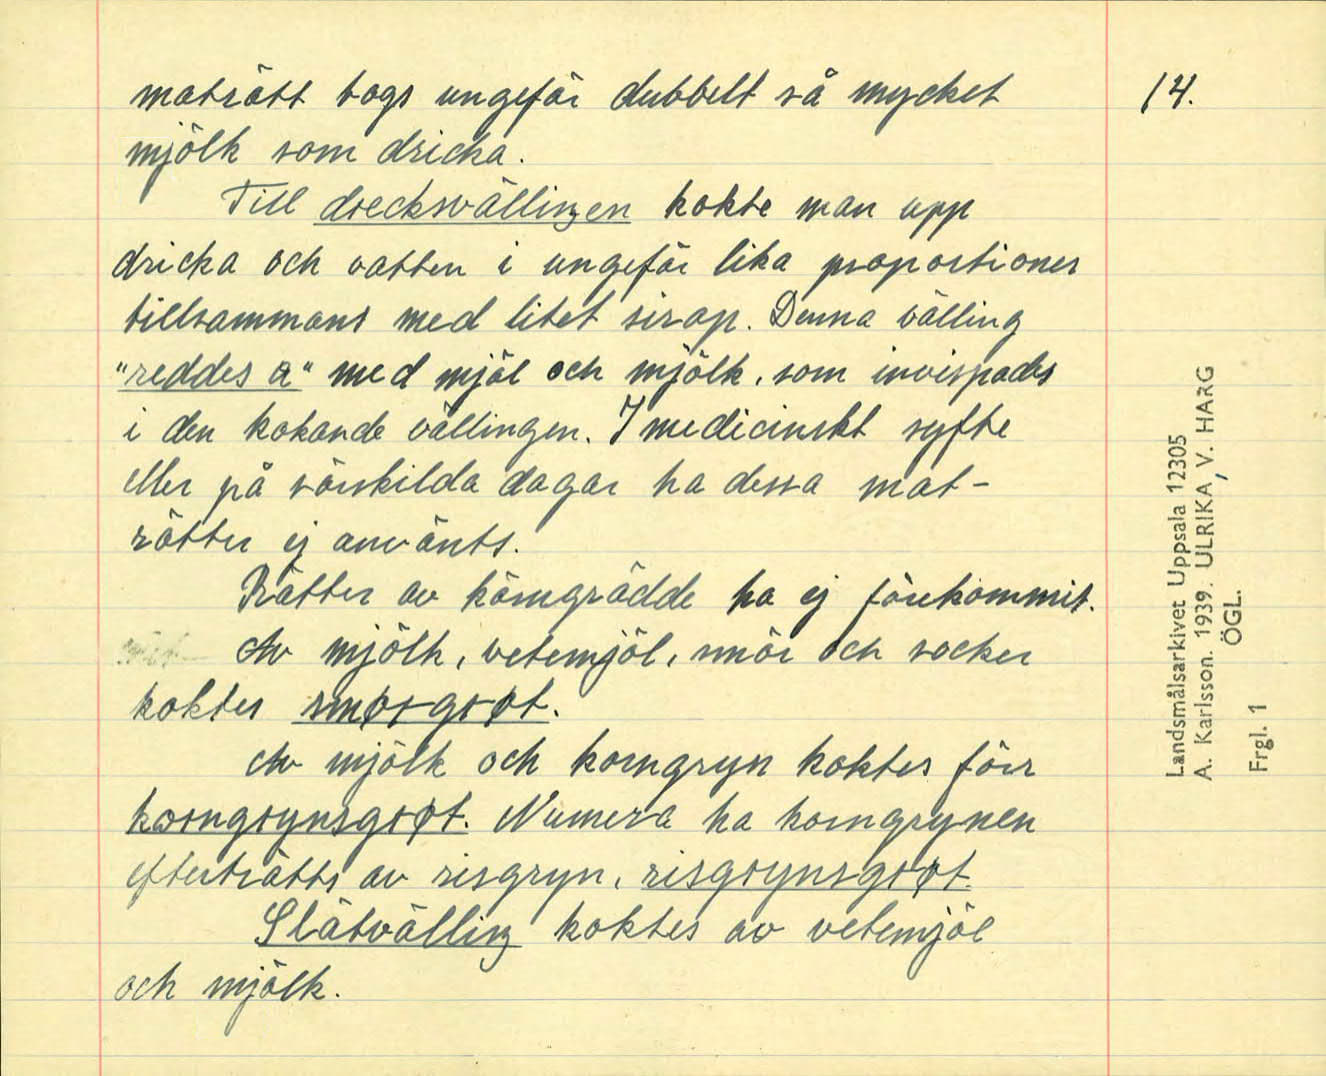 maträtt togs ungefär dubbelt så mycket
14.
mjölk som dricka.
Till drecksvällingen kokte man upp
dricka och vatten i ungefär lika proportioner
tillsammans med litet sirap. Denna välling
"reddes a" med mjöl och mjölk, som invispades
i den kokande vällingen. I medicinskt syfte
eller på särskilda dagar ha dessa mat-
rätter ej använts.
Rätter av kärngrädde ha ej förekommit.
Av mjölk, vetemjöl, smör och socker
koktes smørgrøt.
Av mjölk och korngryn koktes förr
korngrynsgrøt. Numera ha korngrynen
efterträtts av risgryn, risgrynsgrøt.
Slätvälling koktes av vetemjöl
och mjölk.
Landsmålsarkivet Uppsala 12305
A. Karlsson. 1939. ULRIKA, V. HARG
ÖGL.
Frgl. 1